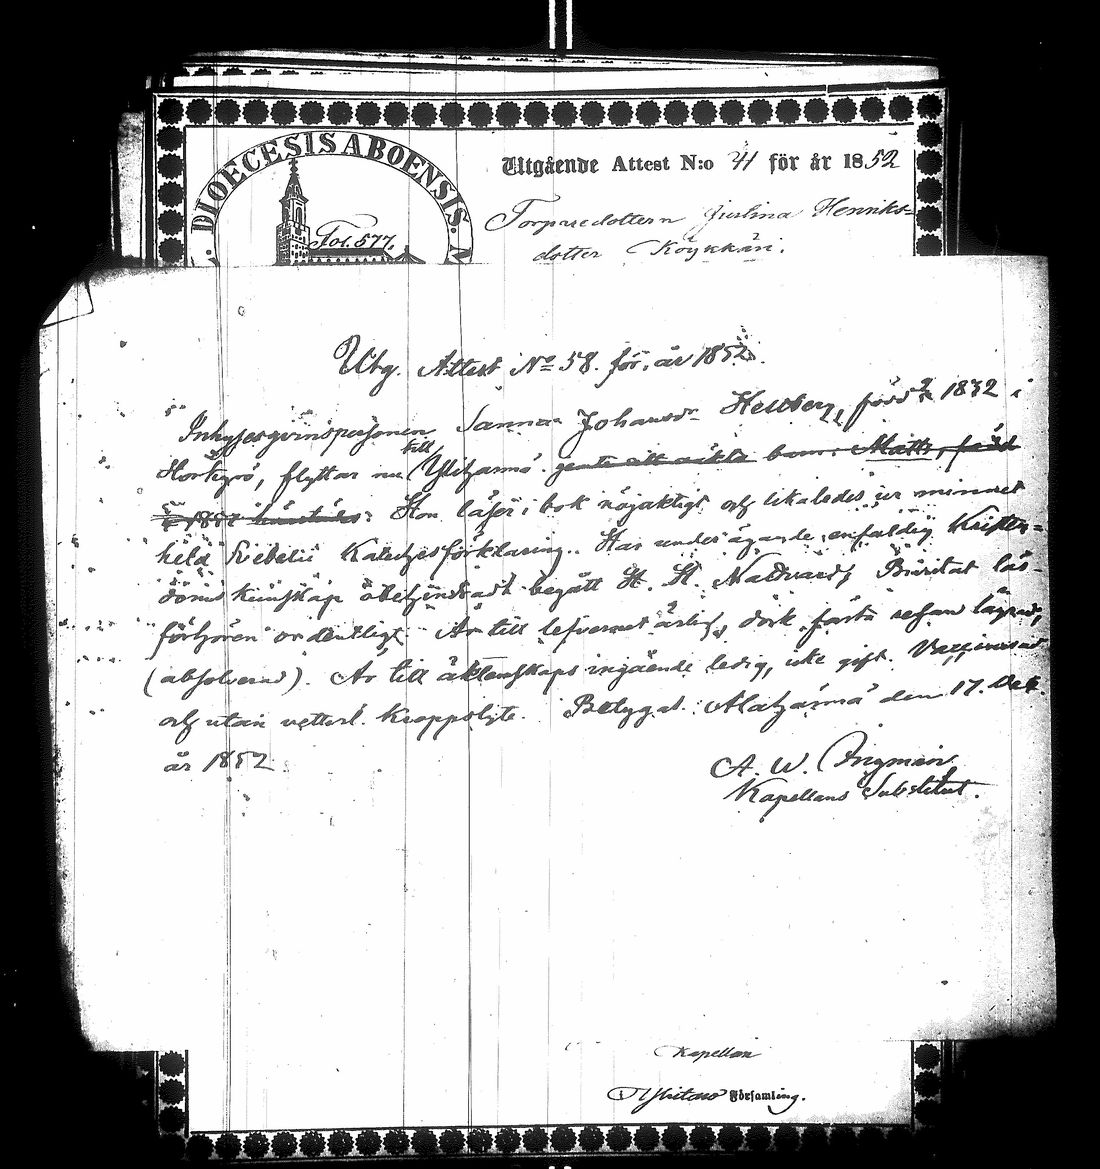 DIOECESIS ABOENSIS.
Fol. 577.
Utgående Attest N:o 41 för år 1852
Torparedottern Justina Henriks-
dotter Köykkäri.
Utg. Attest No 58. för år 1852.
Inhysesqvinspersonen Sanna Johansdr Hellberg, född 1832 i
Hortigrö, flyttar nu till Ylihärmä gente ett oäkta barn: Matts, född
1852 Hon läser i bok nöjaktigt och likaledes ur minnet
hela Svebelii Katechesförklaring. Har under ägande enfaldig Kristen-
doms kunskap begått H. H. Nattvard, Bivistat läs-
förhören ordentligt. Är till lefvernet ärlig, dock första resan lägrad,
(absolverad). Är till äktenskaps ingående ledig, icke gift. Vaccinerad
och utan vetterl. kroppslyte. Betygat Alahärmä den 17. Dec.
år 1852
A. W. Ingman
Kapellans Substitut.
Kapellan
i Ylistaro Församling.